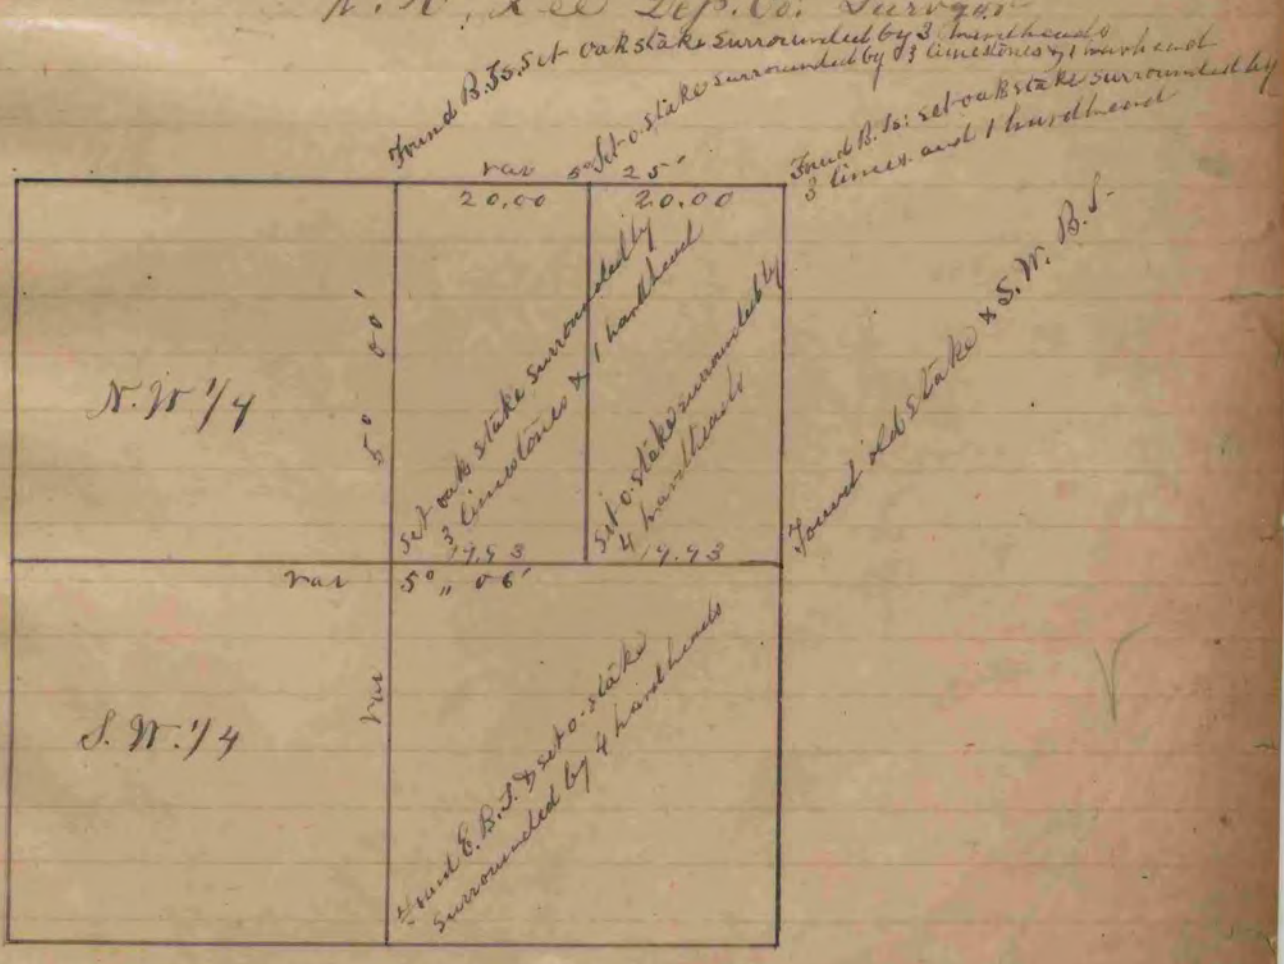 Lee Dep. Co. Survyor
Found B. Ts. Set oak stake surrounded by 3 hardheads
Set o. stake surrounded by 3 limestones & 1 hardhead
Found B. Ts: set oak stake surrounded by
3 limes. and 1 hardhead
var 5° 25'
20.00
20.00
N. W 1/4
5° 00'
Set oak stake surrounded by
3 limestones & 1 hardhead
Set o. stake surrounded by
4 hardheads
Found old stake & S. W. B. T.
19.93
19.93
var
5° " 06'
var
S. W. 1/4
Found E. B. T. & set o. stake
surrounded by 4 hardheads